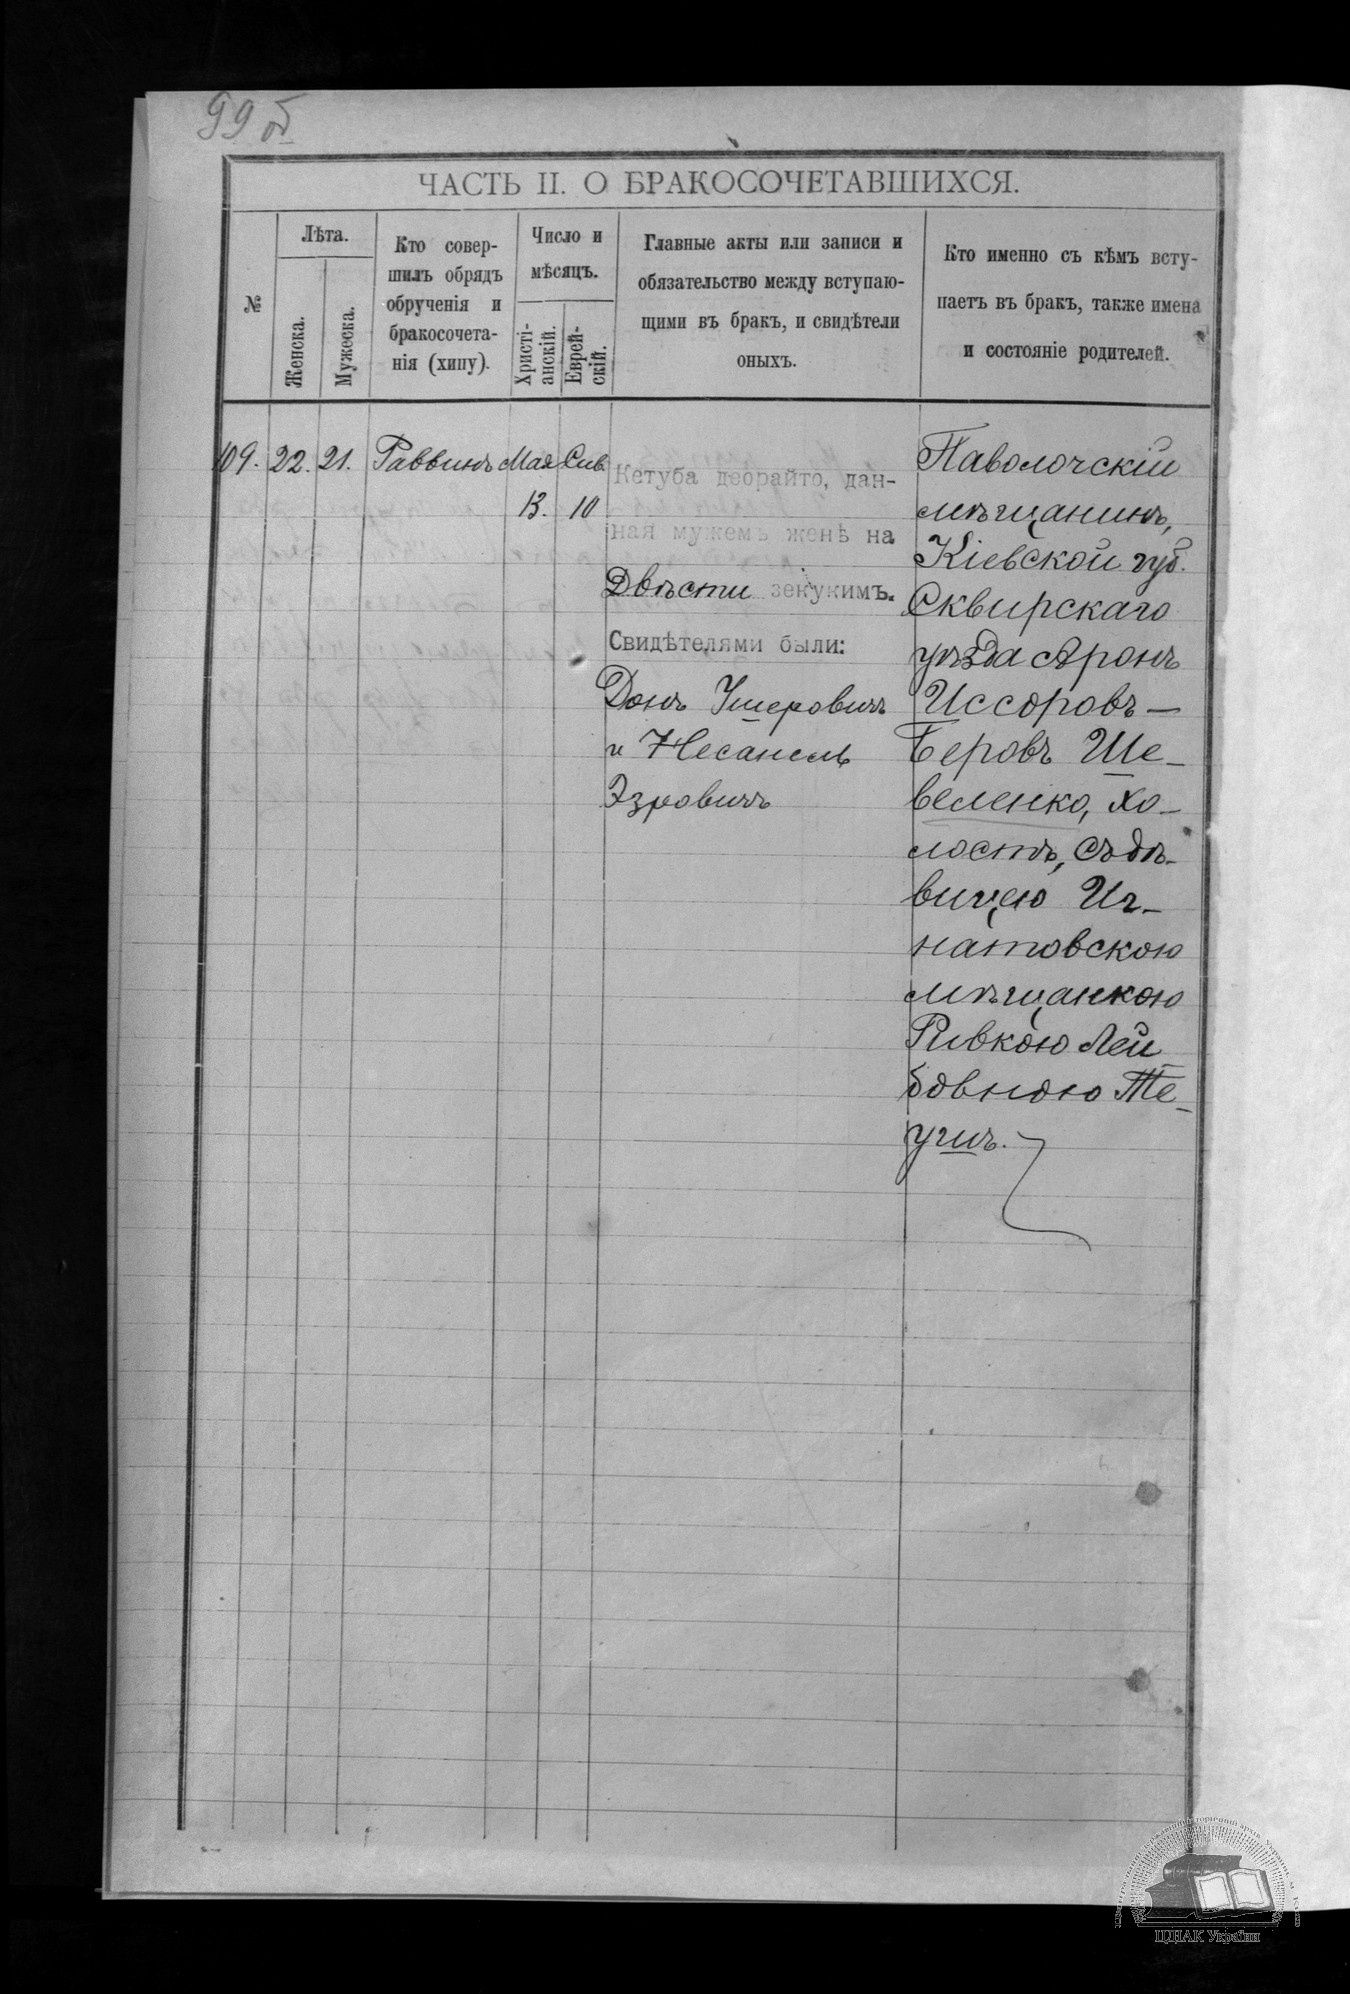 99 об
ЧАСТЬ II. О БРАКОСОЧЕТАВШИХСЯ.
№
Лѣта.
Женска.
Мужеска.
Кто совер-
шилъ обрядъ
обрученія и
бракосочета-
нія (хипу).
Число и
мѣсяцъ.
Христі-
анскій.
Еврей-
скій.
Главные акты или записи и
обязательство между вступаю-
щими въ бракъ, и свидѣтели
оныхъ.
Кто именно съ кѣмъ всту-
паетъ въ бракъ, также имена
и состояніе родителей.
109. 22. 21. Раввинъ Мая Сив
13. 10
Кетуба деорайто, дан-
ная мужемъ женѣ на
Двѣсти зекукимъ.
Свидѣтелями были:
Донъ Ушеровичъ
и Несанель
Эзровичъ
Паволочскій
мѣщанинъ,
Кіевской губ.
Сквирскаго
уѣзда Аронъ
Иссоровъ-
Беровъ Ше-
веленко, хо-
лостъ, съ дѣ-
вицею Иг-
натовскою
мѣщанкою
Ривкою Лей-
бовною Те-
учинъ.
ЦДІАК України